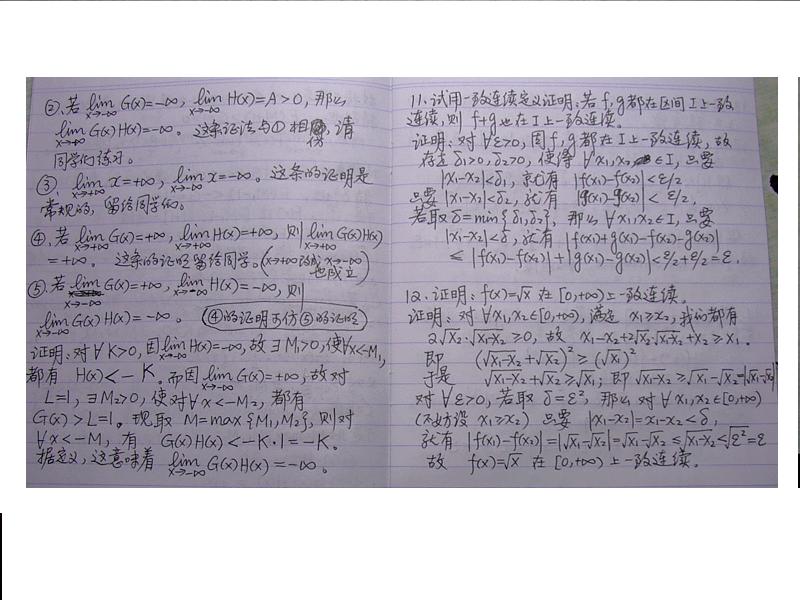 ②、若 lim G(x)=-∞, lim H(x)=A>0, 那么
x→-∞ x→-∞
lim G(x)H(x)=-∞。这条证法与①相仿, 请
x→-∞
同学们练习。
③、lim x=+∞, lim x=-∞。这条的证明是
x→+∞ x→-∞
常规的, 留给同学们。
④、若 lim G(x)=+∞, lim H(x)=+∞, 则 lim G(x)H(x)
x→+∞ x→+∞ x→+∞
=+∞。 这条的证明留给同学。(x→+∞ 改成 x→-∞
也成立)
⑤、若 lim G(x)=+∞, lim H(x)=-∞, 则
x→-∞ x→-∞
lim G(x)H(x)=-∞。 (④的证明可仿⑤的证明)
x→-∞
证明: 对∀K>0, 因 lim H(x)=-∞, 故∃M₁>0, 使∀x<-M₁,
x→-∞
都有 H(x)<-K。而因 lim G(x)=+∞, 故对
x→-∞
L=1, ∃M₂>0, 使对∀x<-M₂, 都有
G(x)>L=1。现取 M=max{M₁,M₂}, 则对
∀x<-M, 有 G(x)H(x)<-K·1=-K。
据定义, 这意味着 lim G(x)H(x)=-∞。
x→-∞
11. 试用一致连续定义证明: 若 f, g 都在区间 I 上一致
连续, 则 f+g 也在 I 上一致连续。
证明: 对∀ε>0, 因 f, g 都在 I 上一致连续, 故
存在 δ₁>0, δ₂>0, 使得 ∀x₁,x₂∈I, 只要
|x₁-x₂|<δ₁, 就有 |f(x₁)-f(x₂)|<ε/2
只要 |x₁-x₂|<δ₂, 就有 |g(x₁)-g(x₂)|<ε/2,
若取 δ=min{δ₁,δ₂}, 那么 ∀x₁,x₂∈I, 只要
|x₁-x₂|<δ, 就有 |f(x₁)+g(x₁)-f(x₂)-g(x₂)|
≤|f(x₁)-f(x₂)|+|g(x₁)-g(x₂)|<ε/2+ε/2=ε.
12. 证明: f(x)=√x 在 [0,+∞) 上一致连续。
证明: 对∀x₁,x₂∈[0,+∞), 满足 x₁≥x₂, 我们都有
2√x₂·√(x₁-x₂)≥0, 故 x₁-x₂+2√x₂√(x₁-x₂)+x₂≥x₁.
即 (√(x₁-x₂)+√x₂)²≥(√x₁)²
于是 √(x₁-x₂)+√x₂≥√x₁; 即 √(x₁-x₂)≥√x₁-√x₂=|√x₁-√x₂|
对∀ε>0, 若取 δ=ε², 那么对∀x₁,x₂∈[0,+∞)
(不妨设 x₁≥x₂) 只要 |x₁-x₂|=x₁-x₂<δ,
就有 |f(x₁)-f(x₂)|=|√x₁-√x₂|=√x₁-√x₂≤√(x₁-x₂)<√ε²=ε
故 f(x)=√x 在 [0,+∞) 上一致连续。